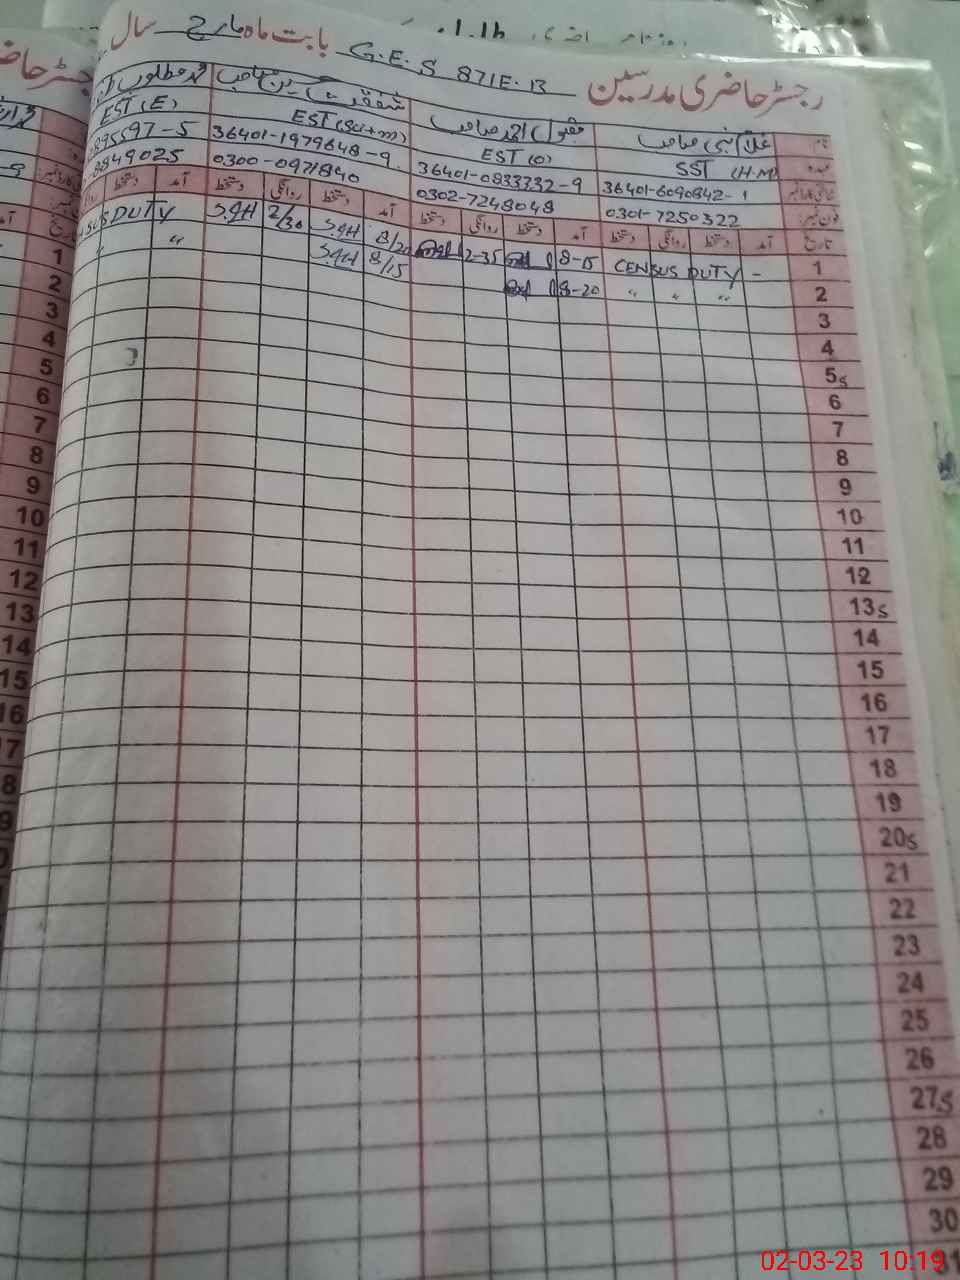 رجسٹر حاضری مدرسین G.E.S 87/E.B بابت ماہ مارچ سال
نام غلام نبی صاحب مقبول احمد صاحب شفقت حسین صاحب محمد مطلوب
عہدہ SST (H.M) EST (O) EST (Sci+m) EST (E)
36401-6090842-1 36401-0833332-9 36401-1979648-9 895597-5
فون نمبر: 0301-7250322 0302-7248048 0300-0971840 8849025
تاریخ آمد دستخط روانگی دستخط آمد دستخط روانگی دستخط آمد دستخط روانگی دستخط آمد دستخط
1 CENSUS DUTY - 8-15 2-35 8/20 SGH 2/30 SGH SUS DUTY
2 〃 〃 〃 8-20 8/15 SGH 〃
3
4
5S
6
7
8
9
10
11
12
13S
14
15
16
17
18
19
20S
21
22
23
24
25
26
27S
28
29
30
31
1
2
3
4
5
6
7
8
9
10
11
12
13
14
15
16
02-03-23 10:19